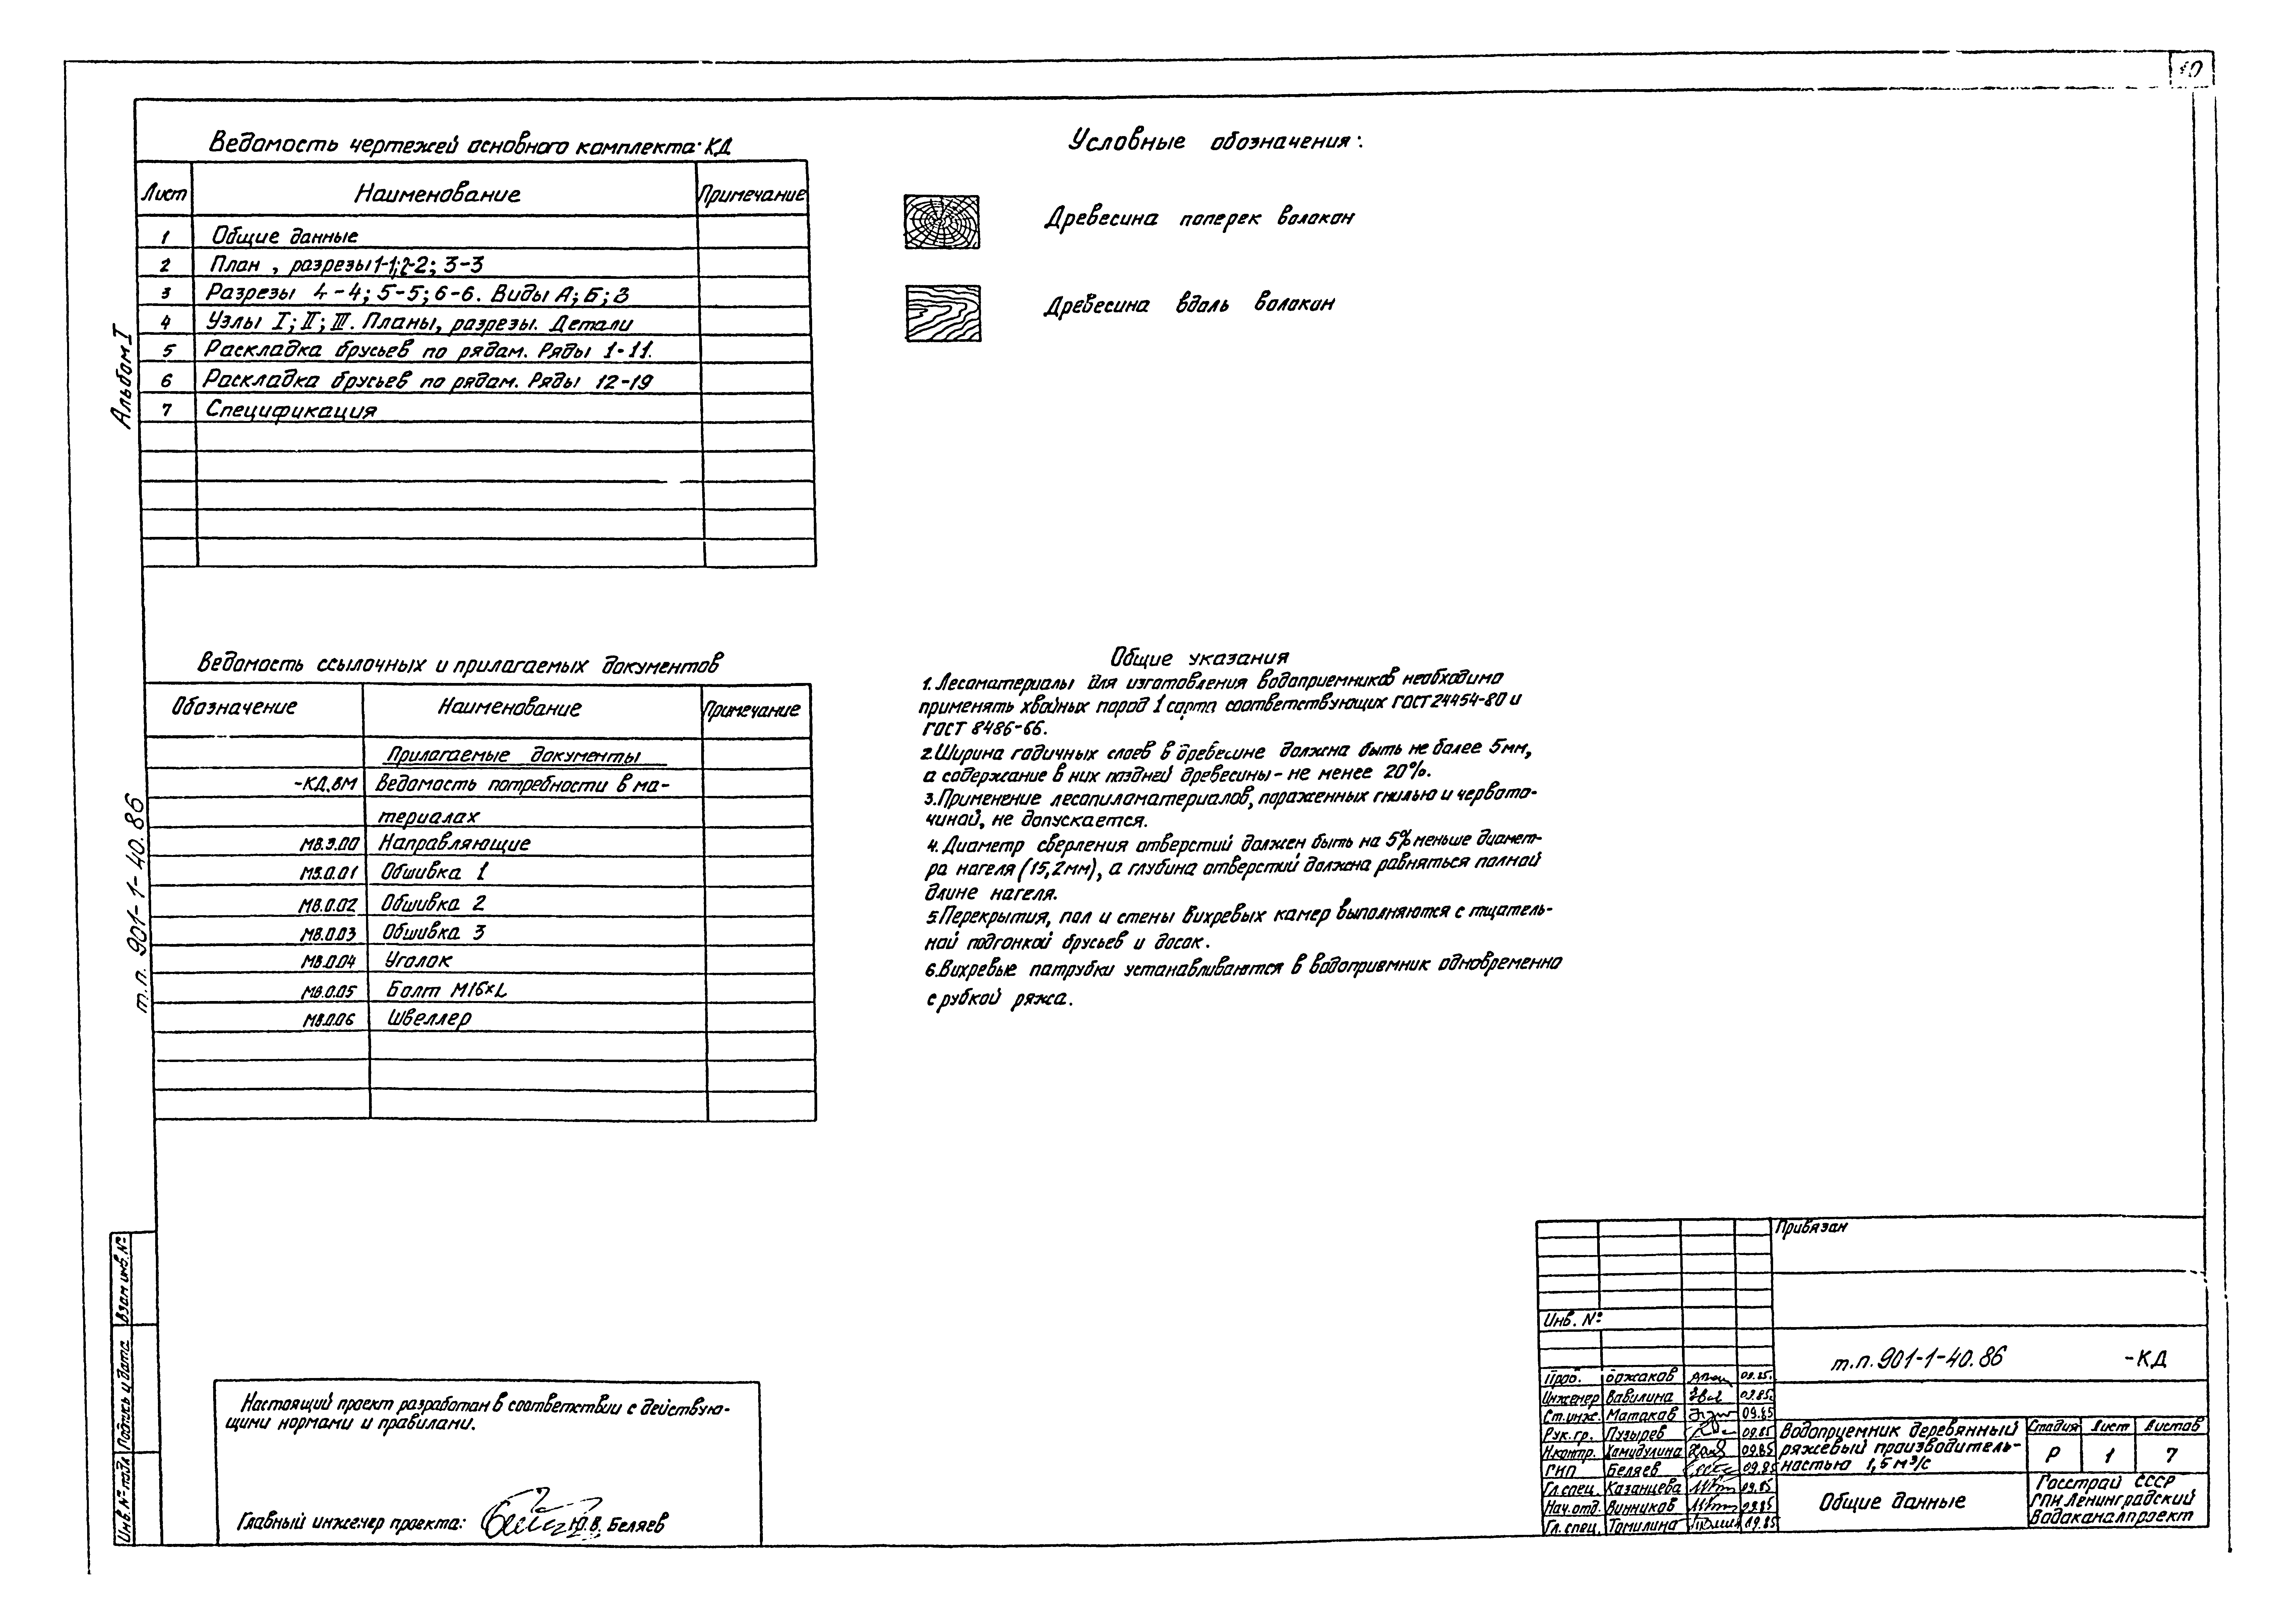 10
Ведомость чертежей основного комплекта КД
Лист Наименование Примечание
1 Общие данные
2 План, разрезы 1-1; 2-2; 3-3
3 Разрезы 4-4; 5-5; 6-6. Виды А; Б; В
4 Узлы I; II; III. Планы, разрезы. Детали
5 Раскладка брусьев по рядам. Ряды 1-11.
6 Раскладка брусьев по рядам. Ряды 12-19
7 Спецификация
Условные обозначения:
Древесина поперек волокон
Древесина вдоль волокон
Альбом I
т.п. 901-1-40.86
Ведомость ссылочных и прилагаемых документов
Обозначение Наименование Примечание
Прилагаемые документы
-КД.ВМ Ведомость потребности в ма-
териалах
МВ.9.00 Направляющие
МВ.0.01 Обшивка 1
МВ.0.02 Обшивка 2
МВ.0.03 Обшивка 3
МВ.0.04 Уголок
МВ.0.05 Болт М16×L
МВ.0.06 Швеллер
Общие указания
1. Лесоматериалы для изготовления водоприемников необходимо
применять хвойных пород 1 сорта соответствующих ГОСТ 24454-80 и
ГОСТ 8486-66.
2. Ширина годичных слоев в древесине должна быть не более 5мм,
а содержание в них поздней древесины - не менее 20%.
3. Применение лесопиломатериалов, пораженных гнилью и червото-
чиной, не допускается.
4. Диаметр сверления отверстий должен быть на 5% меньше диамет-
ра нагеля (15,2мм), а глубина отверстий должна равняться полной
длине нагеля.
5. Перекрытия, пол и стены вихревых камер выполняются с тщатель-
ной подгонкой брусьев и досок.
6. Вихревые патрубки устанавливаются в водоприемник одновременно
с рубкой ряжа.
Взам инв. №
Подпись и дата
Инв № подл
Настоящий проект разработан в соответствии с действую-
щими нормами и правилами.
Главный инженер проекта: Ю.В. Беляев
Привязан
Инв. №
т.п. 901-1-40.86 -КД
Пров. 09.85
Инженер Вавилина 09.85
Ст.инж. Матаков 09.85
Рук.гр. Пузырев 09.85
Н.контр. Хамидулина 09.85
ГИП Беляев 09.85
Гл.спец. Казанцева 09.85
Нач.отд. Винников 09.85
Гл.спец. Томилина 09.85
Водоприемник деревянный
ряжевый производитель-
ностью 1,5 м³/с
Стадия Лист Листов
Р 1 7
Общие данные
Госстрой СССР
ГПИ Ленинградский
Водоканалпроект